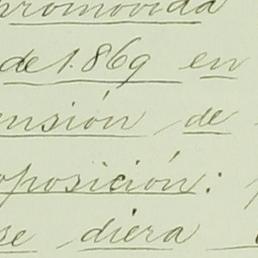 promovida
de 1.869 en
ensión de
oposición:
se diera